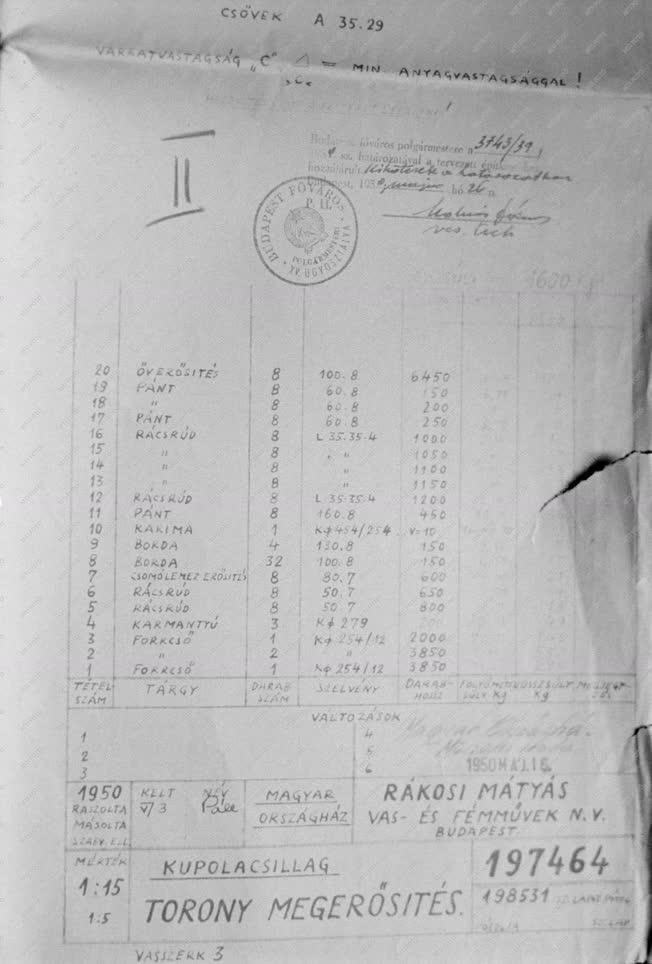 CSÖVEK A 35.29
VARRATVASTAGSÁG „C” = MIN. ANYAGVASTAGSÁGGAL!
II
Budapest főváros polgármestere a 3743/39
sz. határozatával a tervezett
hozzájárult
Budapest, 195 hó 26 n.
BUDAPEST FŐVÁROS
P. H.
POLGÁRMESTERI
XV. ÜGYOSZTÁLYA
20 ÖVERŐSITÉS 8 100.8 6450
19 PÁNT 8 60.8 150
18 " 8 60.8 200
17 PÁNT 8 60.8 250
16 RÁCSRÚD 8 L 35.35.4 1000
15 " 8 " " 1050
14 " 8 " 1100
13 " 8 " 1150
12 RÁCSRÚD 8 L 35.35.4 1200
11 PÁNT 8 160.8 450
10 KARIMA 1 Kφ454/254 V=10
9 BORDA 4 130.8 150
8 BORDA 32 100.8 150
7 CSOMÓLEMEZ ERŐSITÉS 8 80.7 600
6 RÁCSRÚD 8 50.7 650
5 RÁCSRÚD 8 50.7 800
4 KARMANTYÚ 3 Kφ 279
3 FORRCSŐ 1 Kφ 254/12 2000
2 " 2 " 3850
1 FORRCSŐ 1 Kφ 254/12 3850
TÉTELSZÁM TÁRGY DARABSZÁM SZELVÉNY DARABHOSSZ
VÁLTOZÁSOK
1 4
2 5
3 6 1950 MÁJ. 16.
1950 KELT NÉV
RAJZOLTA V/3
MÁSOLTA
MAGYAR
ORSZÁGHÁZ
RÁKOSI MÁTYÁS
VAS- ÉS FÉMMŰVEK N.V.
BUDAPEST.
MÉRTÉK
1:15
1:5
KUPOLACSILLAG
TORONY MEGERŐSITÉS.
197464
198531
VASSZERK 3